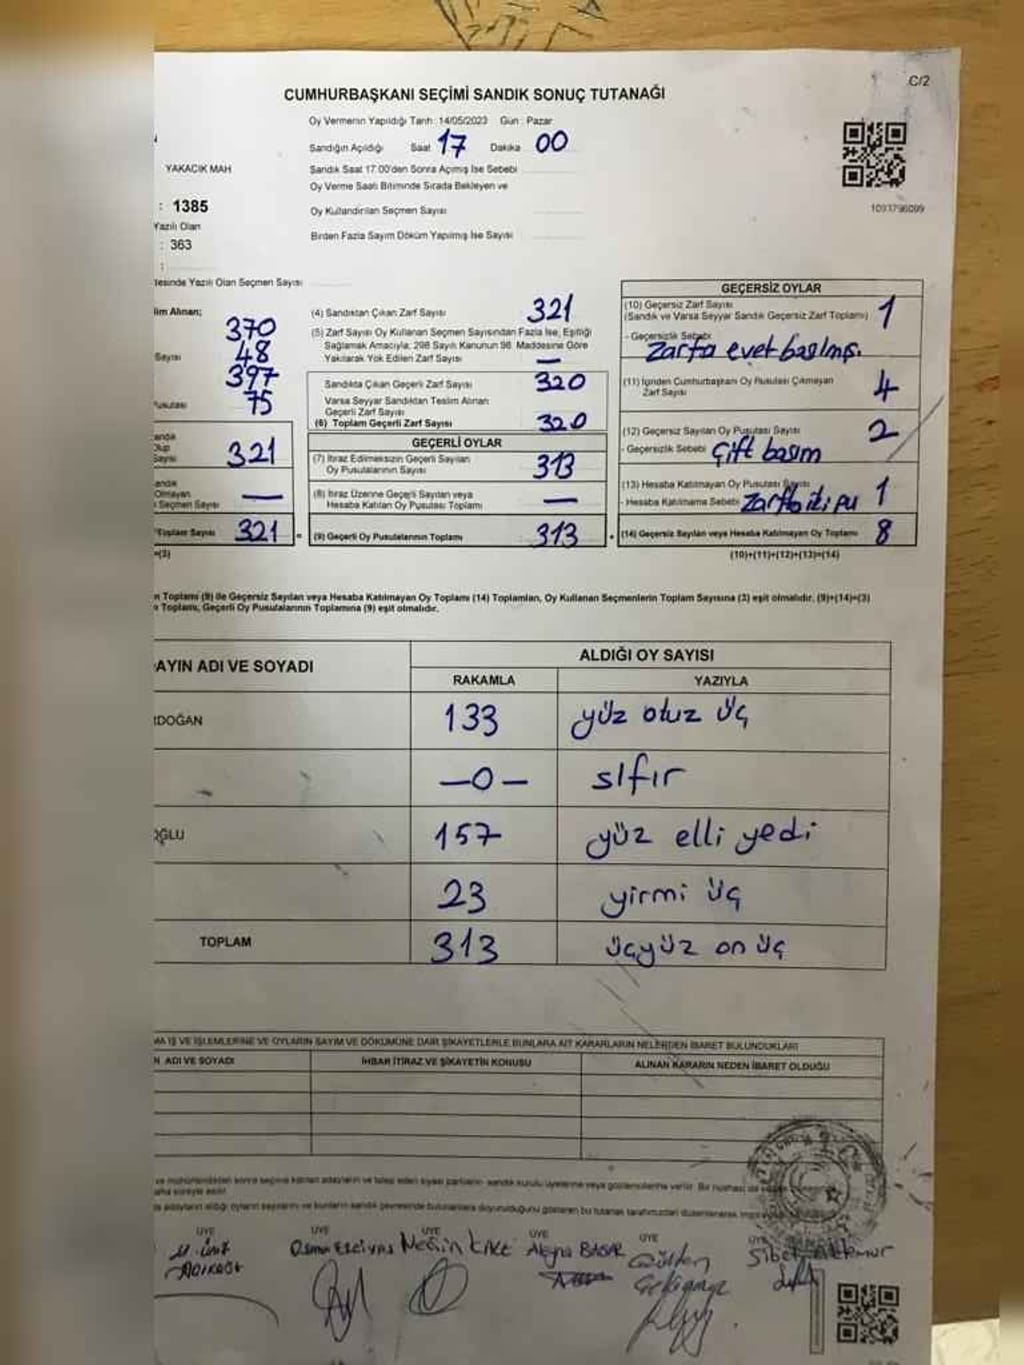 C/2
CUMHURBAŞKANI SEÇİMİ SANDIK SONUÇ TUTANAĞI
Oy Vermenin Yapıldığı Tarih : 14/05/2023 Gün : Pazar
Sandığın Açıldığı Saat 17 Dakika 00
YAKACIK MAH
Sandık Saat 17.00'den Sonra Açılmış İse Sebebi
Oy Verme Saati Bitiminde Sırada Bekleyen ve
: 1385
Oy Kullandırılan Seçmen Sayısı
1093796099
Yazılı Olan
: 363
Birden Fazla Sayım Döküm Yapılmış İse Sayısı
:
tesinde Yazılı Olan Seçmen Sayısı
lim Alınan;
370
Sayısı 48
397
Pusulası 75
Sayısı 321
Olmayan
Seçmen Sayısı —
Toplam Sayısı 321
=(3)
(4) Sandıktan Çıkan Zarf Sayısı 321
(5) Zarf Sayısı Oy Kullanan Seçmen Sayısından Fazla İse, Eşitliği
Sağlamak Amacıyla; 298 Sayılı Kanunun 98. Maddesine Göre
Yakılarak Yok Edilen Zarf Sayısı —
Sandıkta Çıkan Geçerli Zarf Sayısı 320
Varsa Seyyar Sandıktan Teslim Alınan
Geçerli Zarf Sayısı
(6) Toplam Geçerli Zarf Sayısı 320
GEÇERLİ OYLAR
(7) İtiraz Edilmeksizin Geçerli Sayılan
Oy Pusulalarının Sayısı 313
(8) İtiraz Üzerine Geçerli Sayılan veya
Hesaba Katılan Oy Pusulası Toplamı —
= (9) Geçerli Oy Pusulalarının Toplamı 313 +
GEÇERSİZ OYLAR
(10) Geçersiz Zarf Sayısı
(Sandık ve Varsa Seyyar Sandık Geçersiz Zarf Toplamı) 1
- Geçersizlik Sebebi
Zarfa evet basılmış.
(11) İçinden Cumhurbaşkanı Oy Pusulası Çıkmayan
Zarf Sayısı 4
(12) Geçersiz Sayılan Oy Pusulası Sayısı 2
- Geçersizlik Sebebi Çift basım
(13) Hesaba Katılmayan Oy Pusulası Sayısı 1
- Hesaba Katılmama Sebebi
(14) Geçersiz Sayılan veya Hesaba Katılmayan Oy Toplamı 8
(10)+(11)+(12)+(13)=(14)
n Toplamı (9) ile Geçersiz Sayılan veya Hesaba Katılmayan Oy Toplamı (14) Toplamları, Oy Kullanan Seçmenlerin Toplam Sayısına (3) eşit olmalıdır. (9)+(14)=(3)
Toplamı, Geçerli Oy Pusulalarının Toplamına (9) eşit olmalıdır.
AYIN ADI VE SOYADI ALDIĞI OY SAYISI
RAKAMLA YAZIYLA
DOĞAN 133 yüz otuz üç
—0— sıfır
OĞLU 157 yüz elli yedi
23 yirmi üç
TOPLAM 313 üçyüz on üç
MA İŞ VE İŞLEMLERİNE VE OYLARIN SAYIM VE DÖKÜMÜNE DAİR ŞİKAYETLERLE BUNLARA AİT KARARLARIN NELERDEN İBARET BULUNDUKLARI
N ADI VE SOYADI İHBAR İTİRAZ VE ŞİKAYETİN KONUSU ALINAN KARARIN NEDEN İBARET OLDUĞU
ÜYE ÜYE ÜYE ÜYE ÜYE ÜYE
Aleyna BASAR Gülten Sibel